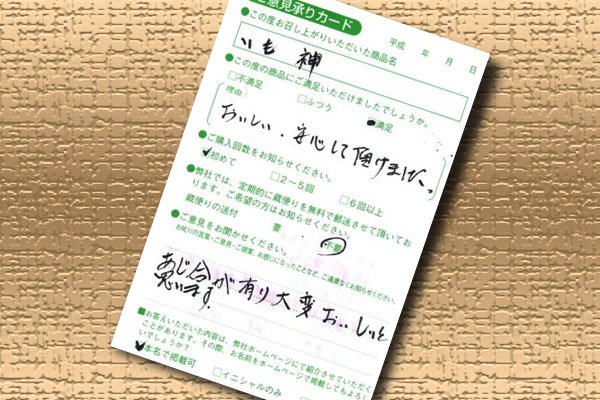 ご意見承りカード
平成 年 月 日
●この度お召し上がりいただいた商品名
いも神
●この度の商品にご満足いただけましたでしょうか。
□不満足 □ふつう ■満足
理由:
おいしい。安心して頂けました。
●ご購入回数をお知らせください。
✓初めて □2〜5回 □6回以上
●弊社では、定期的に蔵便りを無料で郵送させて頂いてお
ります。ご希望の方はお知らせください。
蔵便りの送付 要 ・ 不要
●ご意見をお聞かせください。
お叱りの言葉・ご意見・ご提案、お感じになったことなど、ご遠慮なくお知らせください。
あじ合が有り大変おいしいと
思います。
■お答えいただいた内容は、弊社ホームページにて紹介させていただく
ことがあります。その際、お名前をホームページで掲載してもよろし
いでしょうか?
✓本名で掲載可 □イニシャルのみ